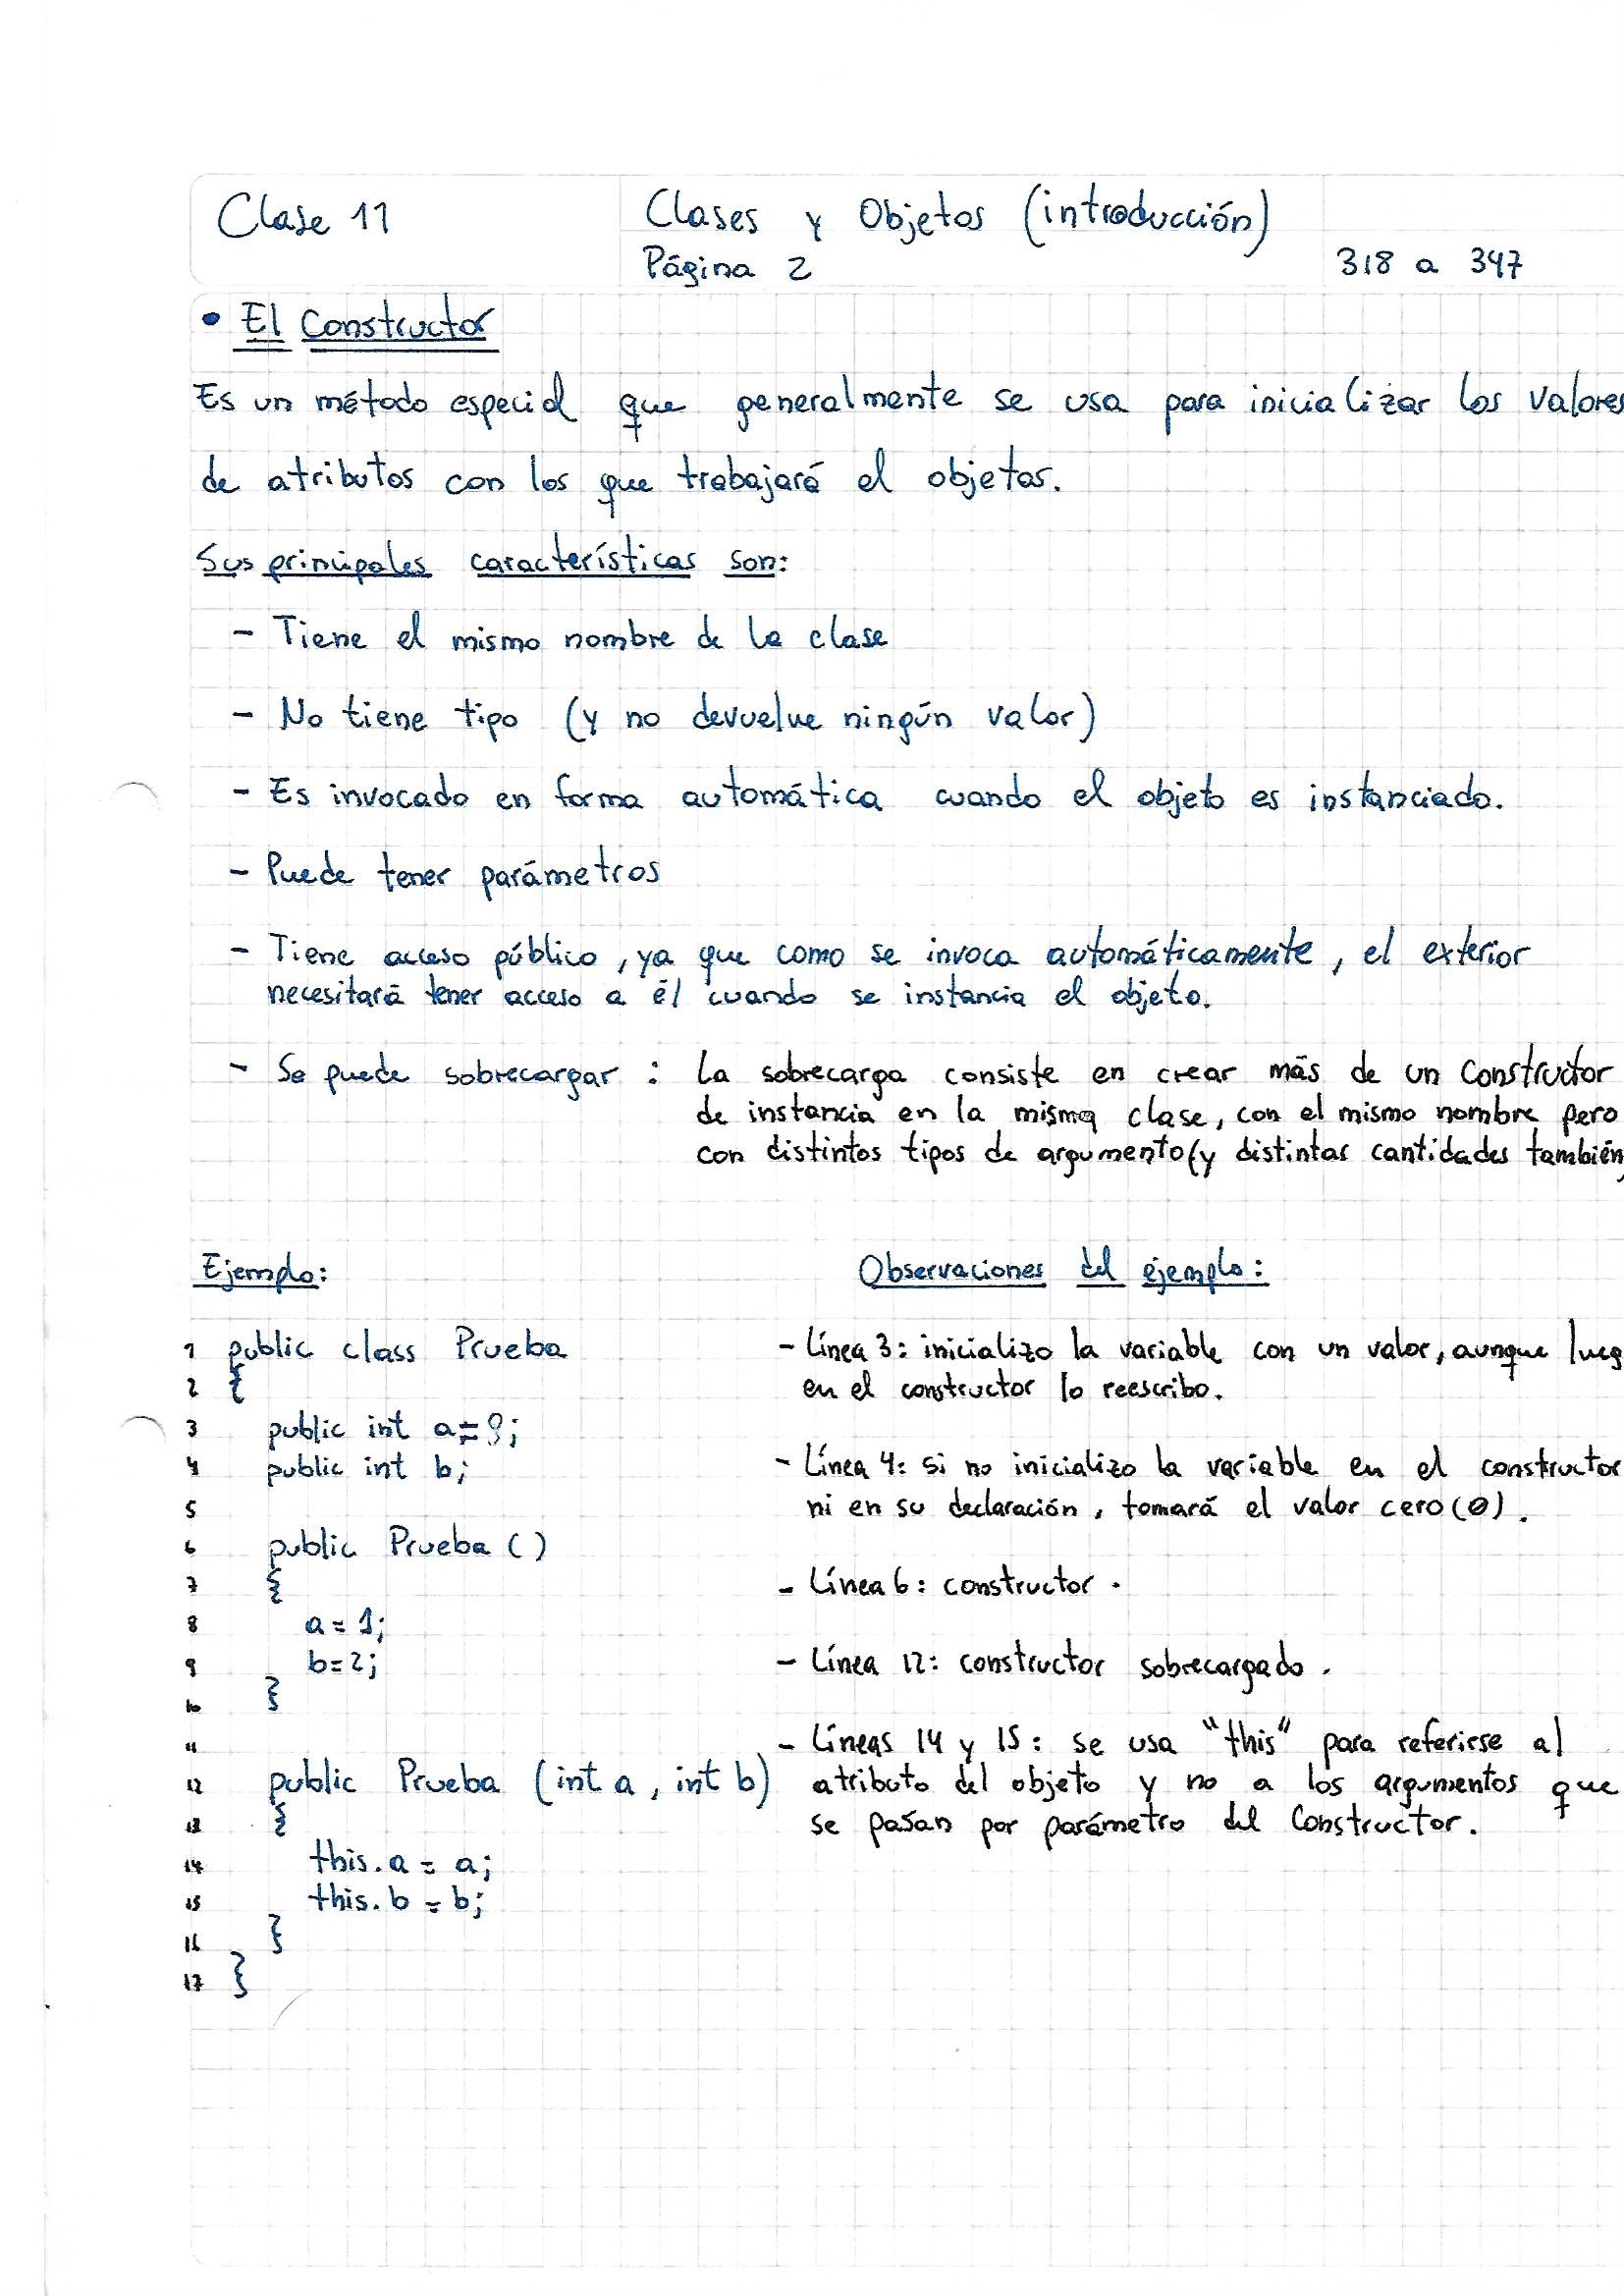 Clase 11
Clases y Objetos (introducción)
Página 2
318 a 347
• El Constructor
Es un método especial que generalmente se usa para inicializar los valores
de atributos con los que trabajará el objetos.
Sus principales características son:
- Tiene el mismo nombre de la clase
- No tiene tipo (y no devuelve ningún valor)
- Es invocado en forma automática cuando el objeto es instanciado.
- Puede tener parámetros
- Tiene acceso público, ya que como se invoca automáticamente, el exterior
necesitará tener acceso a él cuando se instancia el objeto.
- Se puede sobrecargar : La sobrecarga consiste en crear más de un Constructor
de instancia en la misma clase, con el mismo nombre pero
con distintos tipos de argumento (y distintas cantidades también
Ejemplo:
1 public class Prueba
2 {
3 public int a = 9;
4 public int b;
5
6 public Prueba ( )
7 {
8 a = 1;
9 b = 2;
10 }
11
12 public Prueba (int a, int b)
13 {
14 this.a = a;
15 this.b = b;
16 }
17 }
Observaciones del ejemplo:
- Línea 3: inicializo la variable con un valor, aunque lueg
en el constructor lo reescribo.
- Línea 4: si no inicializo la variable en el constructor
ni en su declaración, tomará el valor cero (0).
- Línea 6: constructor.
- Línea 12: constructor sobrecargado.
- Líneas 14 y 15: se usa "this" para referirse al
atributo del objeto y no a los argumentos que
se pasan por parámetro del Constructor.